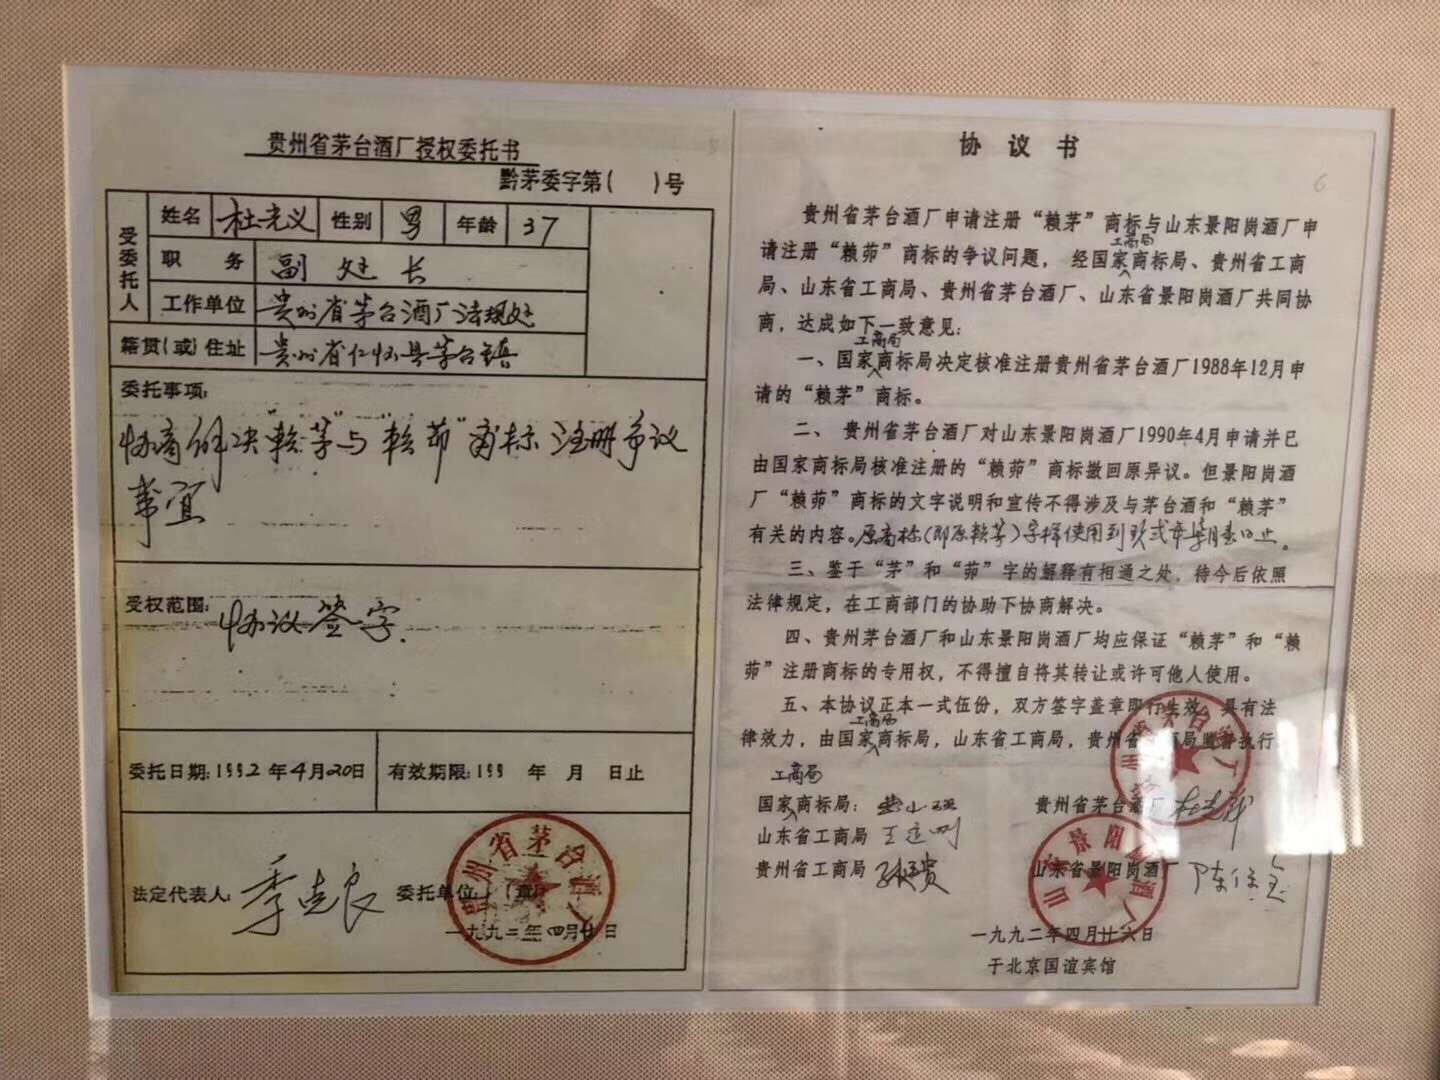 贵州省茅台酒厂授权委托书
黔茅委字第( )号
受委托人
姓名 杜光义 性别 男 年龄 37
职务 副处长
工作单位 贵州省茅台酒厂法规处
籍贯(或)住址 贵州省仁怀县茅台镇
委托事项:
协商解决“赖茅”与“赖茆”商标注册争议
事宜
受权范围: 协议签字.
委托日期:1992年4月20日 有效期限:199 年 月 日止
法定代表人: 季克良 委托单位: (章)
贵州省茅台酒厂
一九九二年四月廿日
协议书
6
贵州省茅台酒厂申请注册“赖茅”商标与山东景阳岗酒厂申
请注册“赖茆”商标的争议问题，经国家工商局商标局、贵州省工商
局、山东省工商局、贵州省茅台酒厂、山东省景阳岗酒厂共同协
商，达成如下一致意见:
一、国家工商局商标局决定核准注册贵州省茅台酒厂1988年12月申
请的“赖茅”商标。
二、贵州省茅台酒厂对山东景阳岗酒厂1990年4月申请并已
由国家商标局核准注册的“赖茆”商标撤回原异议。但景阳岗酒
厂“赖茆”商标的文字说明和宣传不得涉及与茅台酒和“赖茅”
有关的内容。原商标(即原赖茅)字样使用到 止。
三、鉴于“茅”和“茆”字的解释有相通之处，待今后依照
法律规定，在工商部门的协助下协商解决。
四、贵州茅台酒厂和山东景阳岗酒厂均应保证“赖茅”和“赖
茆”注册商标的专用权，不得擅自将其转让或许可他人使用。
五、本协议正本一式伍份，双方签字盖章即行生效，具有法
律效力，由国家工商局商标局，山东省工商局，贵州省工商局监督执行
国家工商局商标局: 贵州省茅台酒厂
山东省工商局 王
贵州省工商局 贵 山东省景阳岗酒厂 陈
一九九二年四月廿六日
于北京国谊宾馆